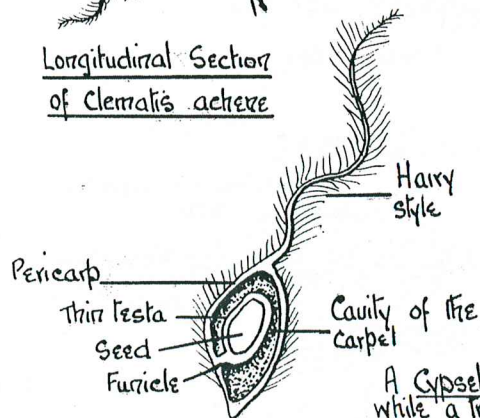 Longitudinal Section
of Clematis achene
Hairy
style
Pericarp
Thin testa
Seed
Funicle
Cavity of the
carpel
A Cypsel
while a